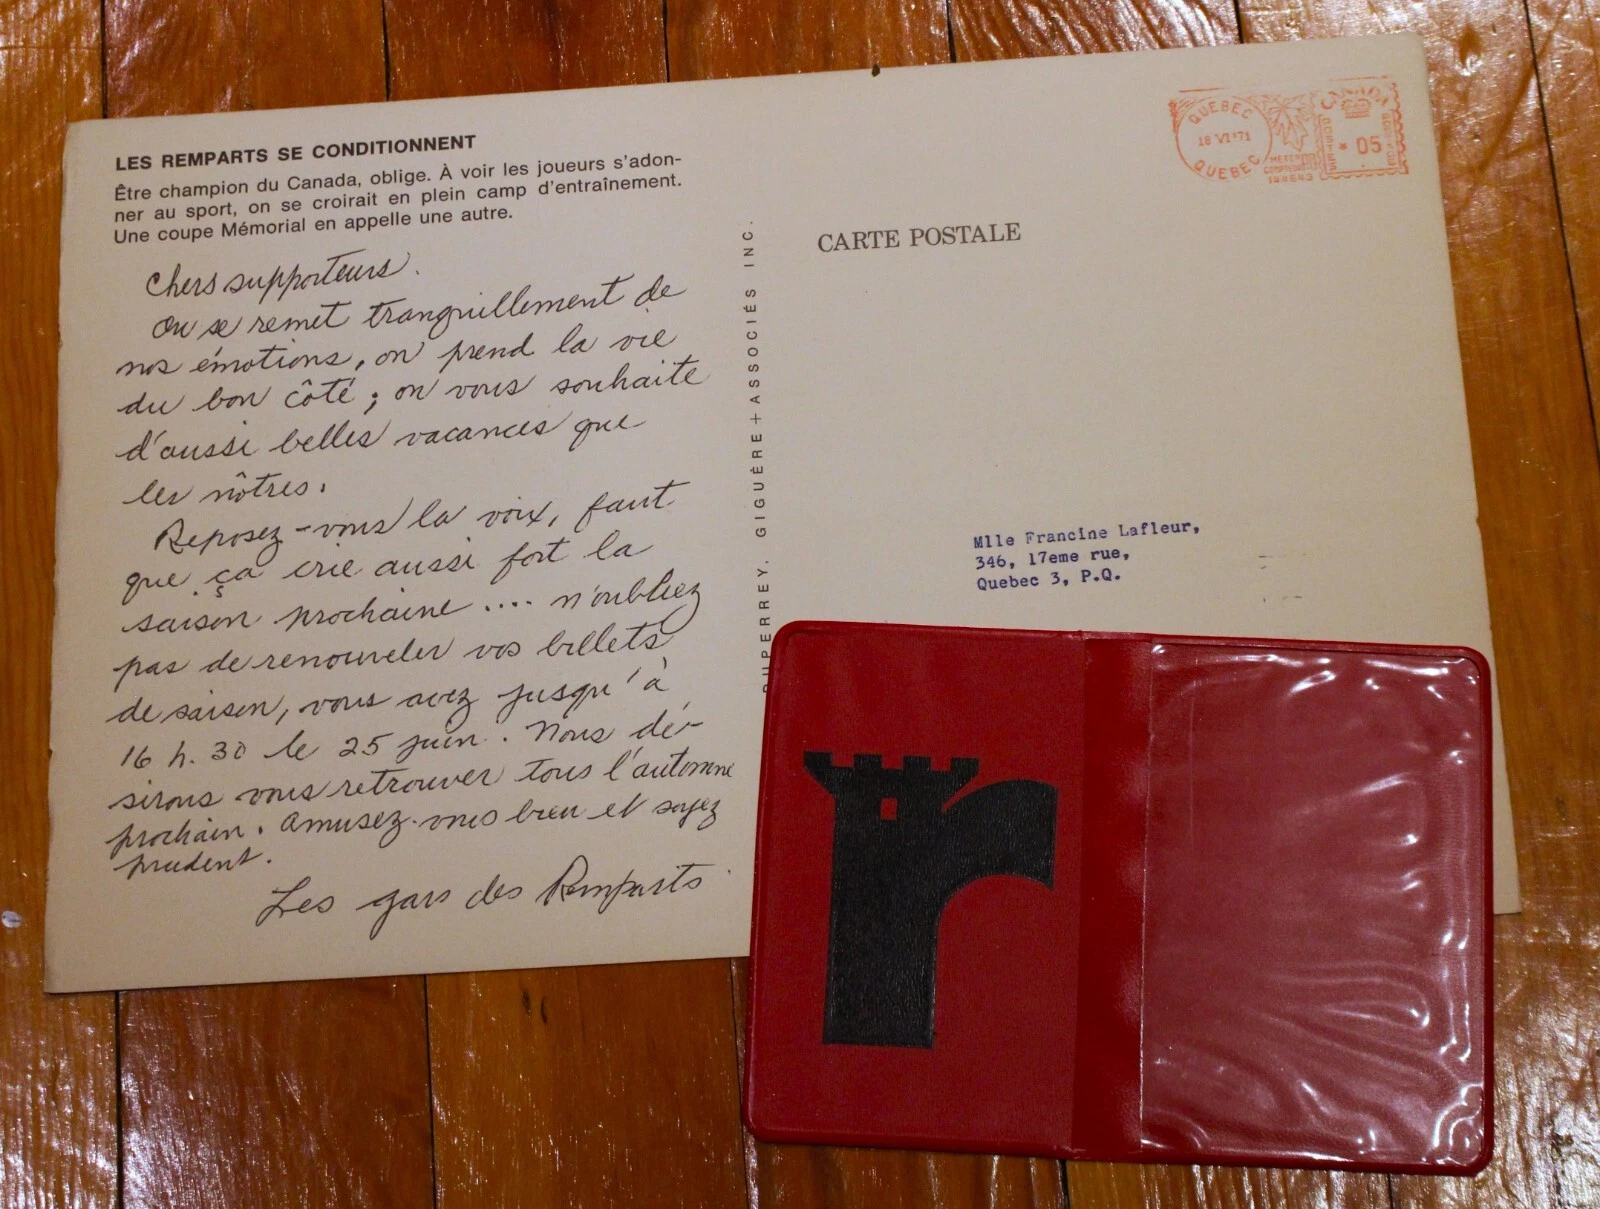 LES REMPARTS SE CONDITIONNENT
Être champion du Canada, oblige. À voir les joueurs s'adon-
ner au sport, on se croirait en plein camp d'entraînement.
Une coupe Mémorial en appelle une autre.
Chers supporteurs.
On se remet tranquillement de
nos émotions, on prend la vie
du bon côté; on vous souhaite
d'aussi belles vacances que
les nôtres.
Reposez-vous la voix, faut
que ça crie aussi fort la
saison prochaine .... n'oubliez
pas de renouveler vos billets
de saison, vous avez jusqu'à
16 h. 30 le 25 juin. Nous dé-
sirons vous retrouver tous l'automne
prochain. Amusez-vous bien et soyez
prudent.
Les gars des Remparts
DUPERREY, GIGUÈRE+ASSOCIÉS INC.
CARTE POSTALE
QUEBEC
18 VI '71
QUEBEC
CANADA
POSTES
POSTAGE
* 05
METER
Mlle Francine Lafleur,
346, 17eme rue,
Quebec 3, P.Q.